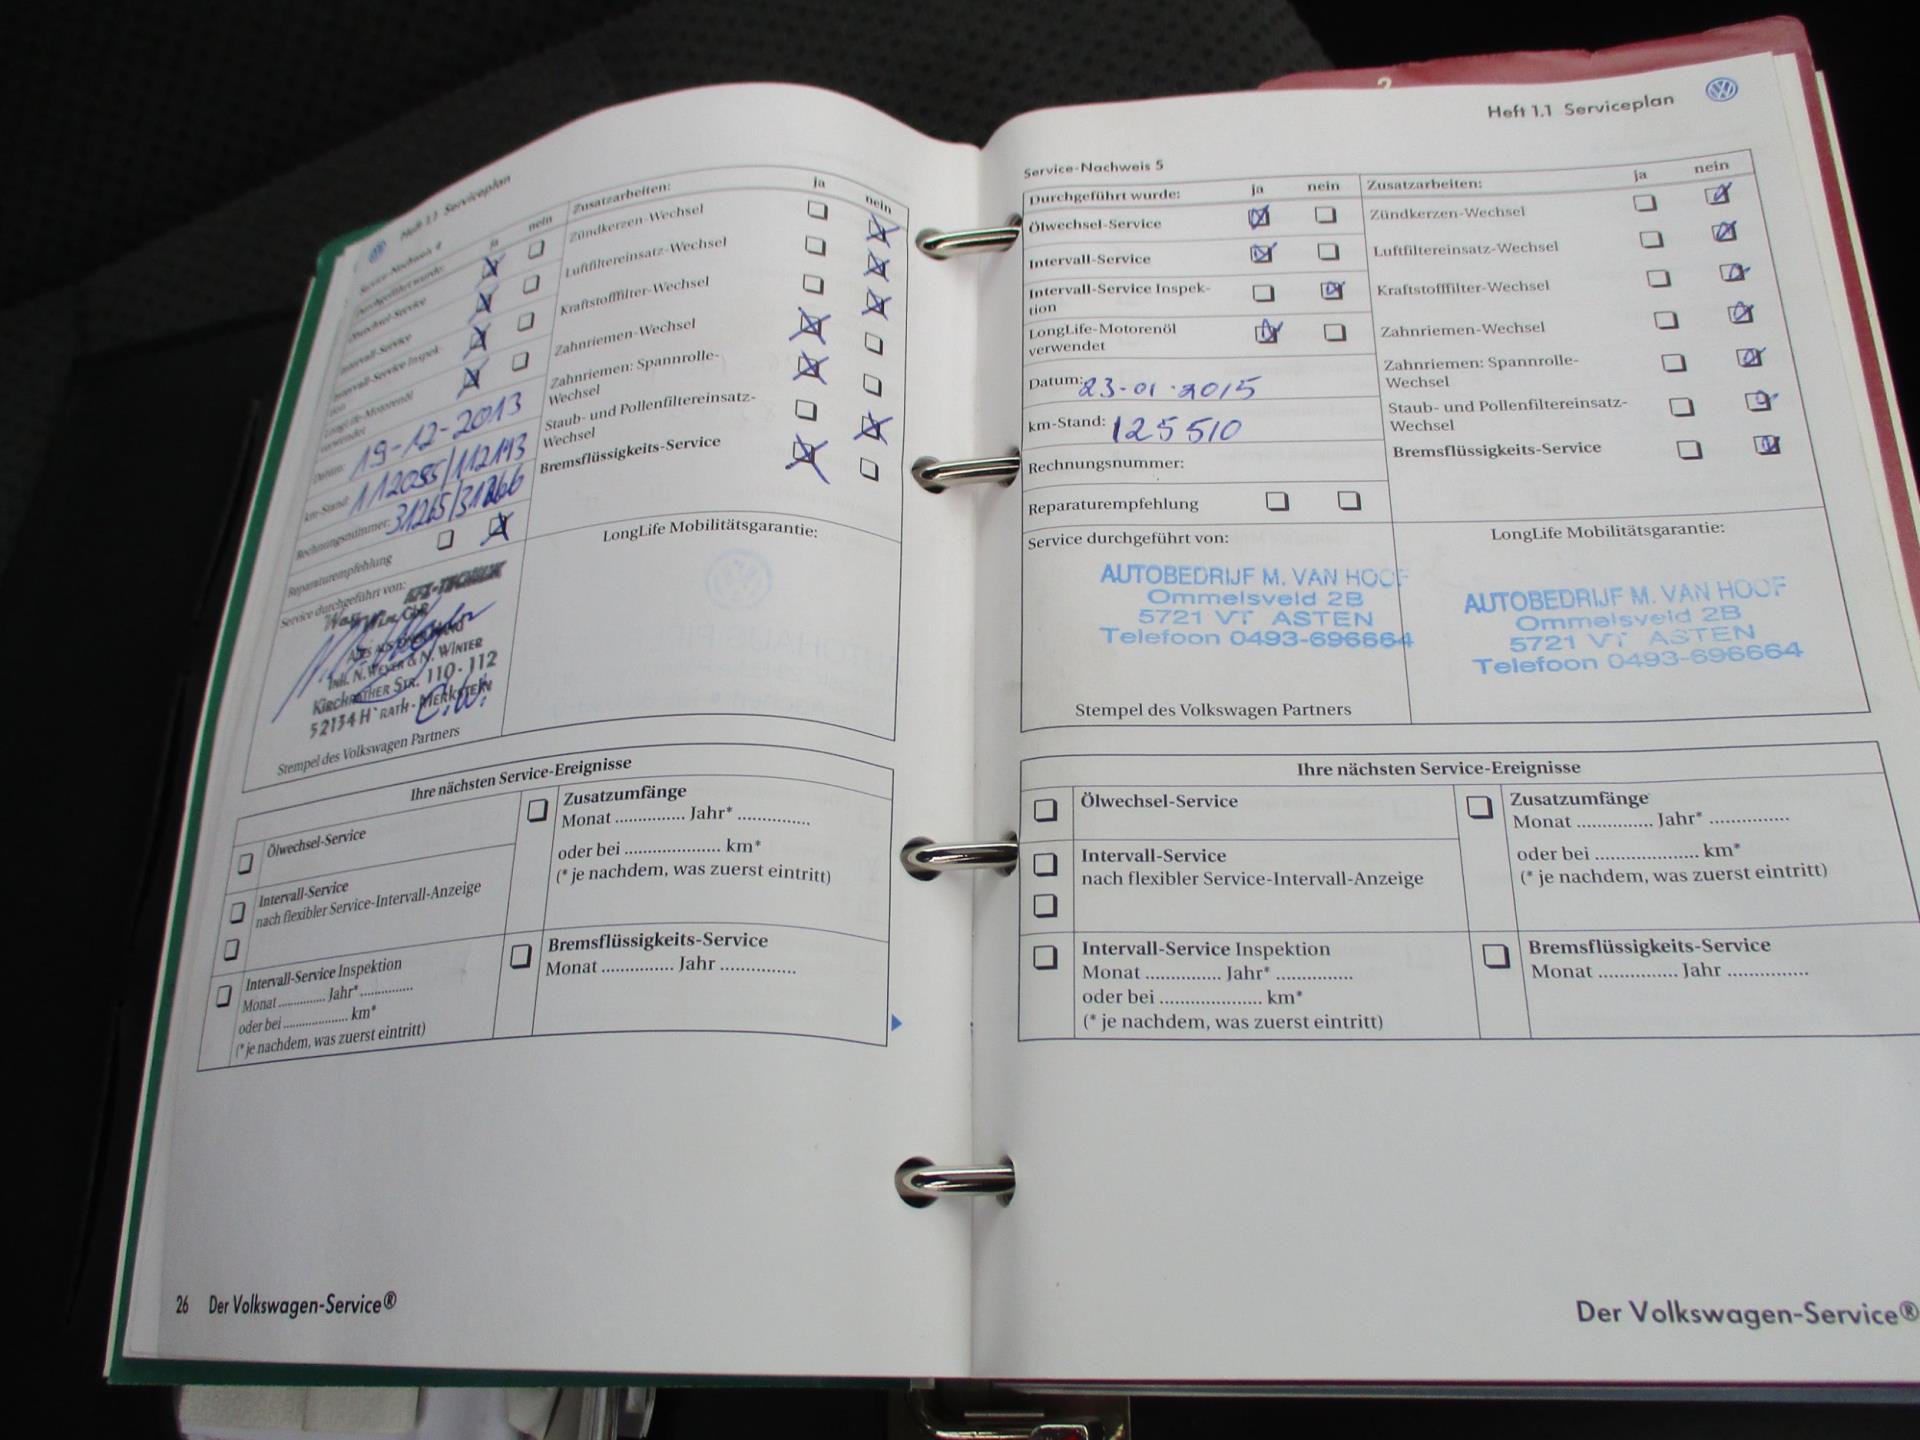 Heft 1.1 Serviceplan
Service-Nachweis 4
Durchgeführt wurde:
ja
nein
Zusatzarbeiten:
ja
nein
Ölwechsel-Service
Zündkerzen-Wechsel
Intervall-Service
Luftfiltereinsatz-Wechsel
Intervall-Service Inspek-
tion
Kraftstofffilter-Wechsel
LongLife-Motorenöl
verwendet
Zahnriemen-Wechsel
Datum: 19-12-2013
Zahnriemen: Spannrolle-
Wechsel
km-Stand: 112085/112193
Staub- und Pollenfiltereinsatz-
Wechsel
Rechnungsnummer: 31265/31266
Bremsflüssigkeits-Service
Reparaturempfehlung
Service durchgeführt von:
LongLife Mobilitätsgarantie:
KFZ-TECHNIK
GbR
Inh. N. Weyer & N. Winter
Kirchrather Str. 110-112
52134 H'rath-Merkstein
Stempel des Volkswagen Partners
Ihre nächsten Service-Ereignisse
Ölwechsel-Service
Zusatzumfänge
Monat ............... Jahr* ...............
oder bei .................... km*
(* je nachdem, was zuerst eintritt)
Intervall-Service
nach flexibler Service-Intervall-Anzeige
Intervall-Service Inspektion
Monat ............... Jahr* ...............
oder bei .................... km*
(* je nachdem, was zuerst eintritt)
Bremsflüssigkeits-Service
Monat ............... Jahr ...............
26 Der Volkswagen-Service®
2
Heft 1.1 Serviceplan
Service-Nachweis 5
Durchgeführt wurde:
ja
nein
Zusatzarbeiten:
ja
nein
Ölwechsel-Service
Zündkerzen-Wechsel
Intervall-Service
Luftfiltereinsatz-Wechsel
Intervall-Service Inspek-
tion
Kraftstofffilter-Wechsel
LongLife-Motorenöl
verwendet
Zahnriemen-Wechsel
Datum: 23-01-2015
Zahnriemen: Spannrolle-
Wechsel
km-Stand: 125510
Staub- und Pollenfiltereinsatz-
Wechsel
Rechnungsnummer:
Bremsflüssigkeits-Service
Reparaturempfehlung
Service durchgeführt von:
AUTOBEDRIJF M. VAN HOOF
Ommelsveld 2B
5721 VT ASTEN
Telefoon 0493-696664
Stempel des Volkswagen Partners
LongLife Mobilitätsgarantie:
AUTOBEDRIJF M. VAN HOOF
Ommelsveld 2B
5721 VT ASTEN
Telefoon 0493-696664
Ihre nächsten Service-Ereignisse
Ölwechsel-Service
Zusatzumfänge
Monat ............... Jahr* ...............
oder bei .................... km*
(* je nachdem, was zuerst eintritt)
Intervall-Service
nach flexibler Service-Intervall-Anzeige
Intervall-Service Inspektion
Monat ............... Jahr* ...............
oder bei .................... km*
(* je nachdem, was zuerst eintritt)
Bremsflüssigkeits-Service
Monat ............... Jahr ...............
Der Volkswagen-Service®